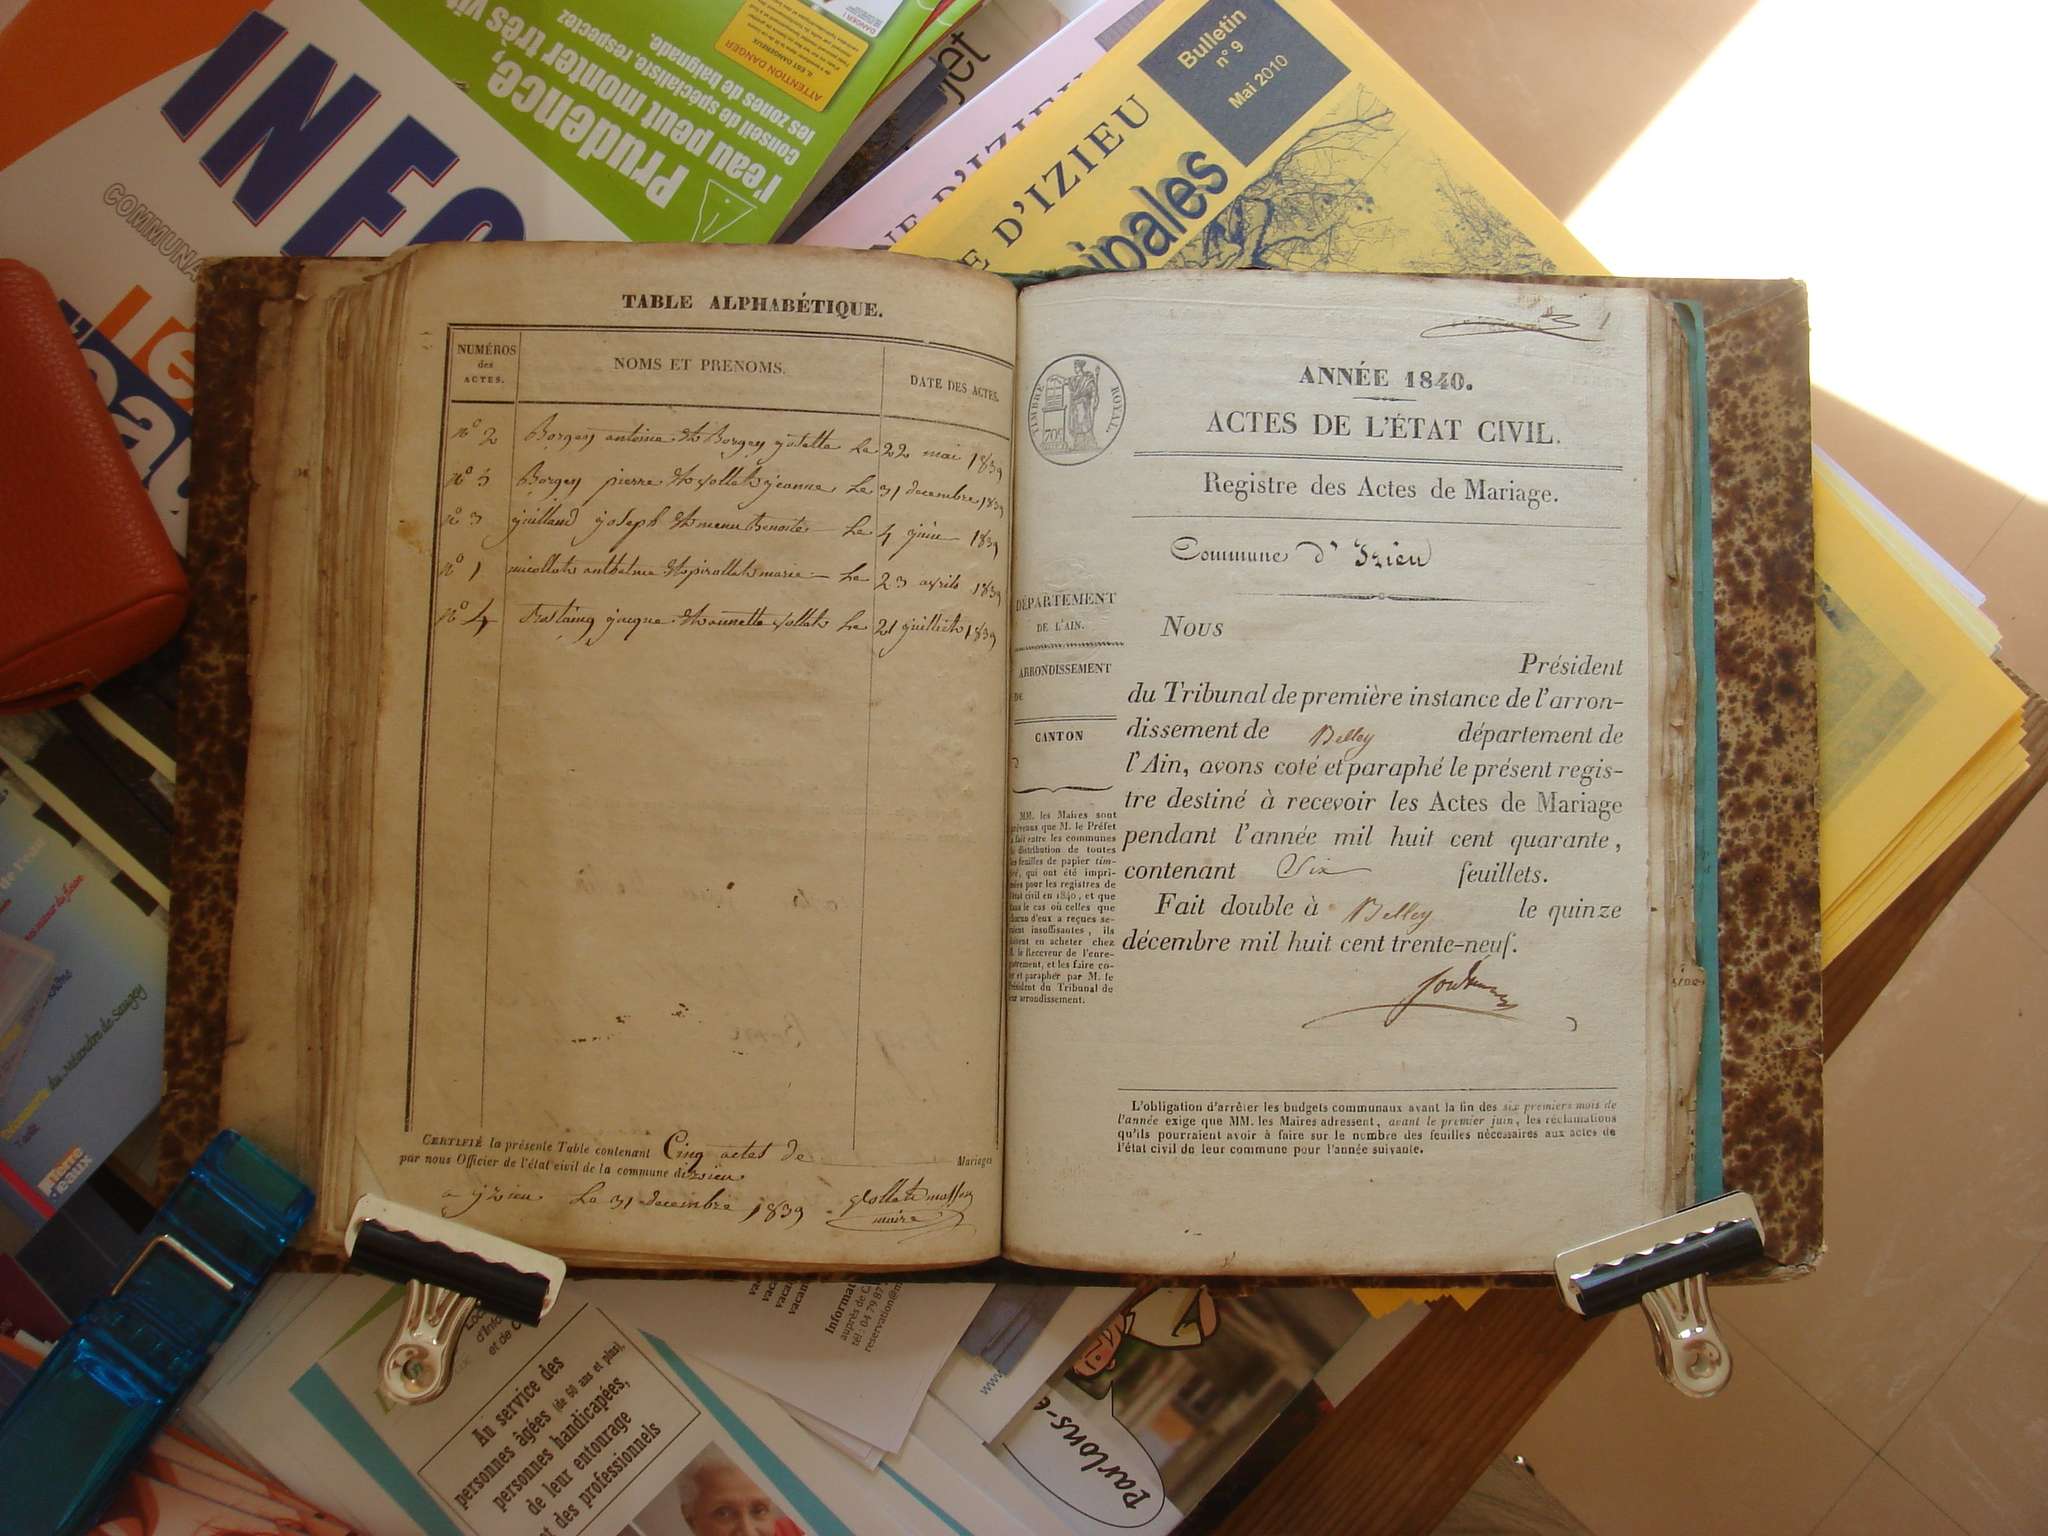 INFO
COMMUNA
Prudence,
l'eau peut monter très vit
conseil de spécialiste, respectez
les zones de baignade.
ATTENTION DANGER
Bulletin
n° 9
Mai 2010
NE D'IZIEU
E D'IZIEU
cipales
TABLE ALPHABÉTIQUE.
NUMÉROS
des
ACTES.
NOMS ET PRENOMS.
DATE DES ACTES.
n° 2 Borgey antoine et Borgey josette Le 22 mai 1839
n° 5 Borgey pierre et jeanne Le 31 decembre 1839
n° 3 guilland joseph et benoite Le 4 juin 1839
n° 1 et marie Le 23 avril 1839
n° 4 jacque et annette Le 21 juillet 1839
CERTIFIÉ la présente Table contenant Cinq actes de Mariages
par nous Officier de l'état civil de la commune dizieu
a yzieu Le 31 decembre 1839
maire
1
TIMBRE ROYAL
70c
ANNÉE 1840.
ACTES DE L'ÉTAT CIVIL.
Registre des Actes de Mariage.
Commune d'Izieu
DÉPARTEMENT
DE L'AIN.
ARRONDISSEMENT
DE
CANTON
D
MM. les Maires sont
prévenus que M. le Préfet
a fait entre les communes
la distribution de toutes
les feuilles de papier tim-
bré, qui ont été impri-
mées pour les registres de
l'état civil en 1840, et que
dans le cas où celles que
chacun d'eux a reçues se-
raient insuffisantes, ils
doivent en acheter chez
M. le Receveur de l'enre-
gistrement, et les faire co-
ter et parapher par M. le
Président du Tribunal de
leur arrondissement.
Nous
Président
du Tribunal de première instance de l'arron-
dissement de Belley département de
l'Ain, avons coté et paraphé le présent regis-
tre destiné à recevoir les Actes de Mariage
pendant l'année mil huit cent quarante,
contenant Six feuillets.
Fait double à Belley le quinze
décembre mil huit cent trente-neuf.
L'obligation d'arrêter les budgets communaux avant la fin des six premiers mois de
l'année exige que MM. les Maires adressent, avant le premier juin, les réclamations
qu'ils pourraient avoir à faire sur le nombre des feuilles nécessaires aux actes de
l'état civil de leur commune pour l'année suivante.
Découverte du Méandre de Saugey
Terre
d'eaux
d'Info
et de C
Au service des
personnes âgées (de 60 ans et plus),
personnes handicapées,
de leur entourage
et des professionnels
Informat
auprès de C
tél : 04 79 87
reservation@m
www
Parlons-e